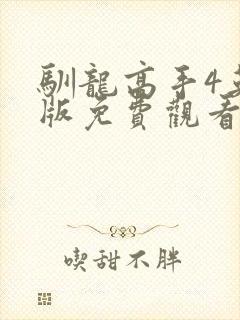 馴龍高手4
版免費觀看
喫甜不胖